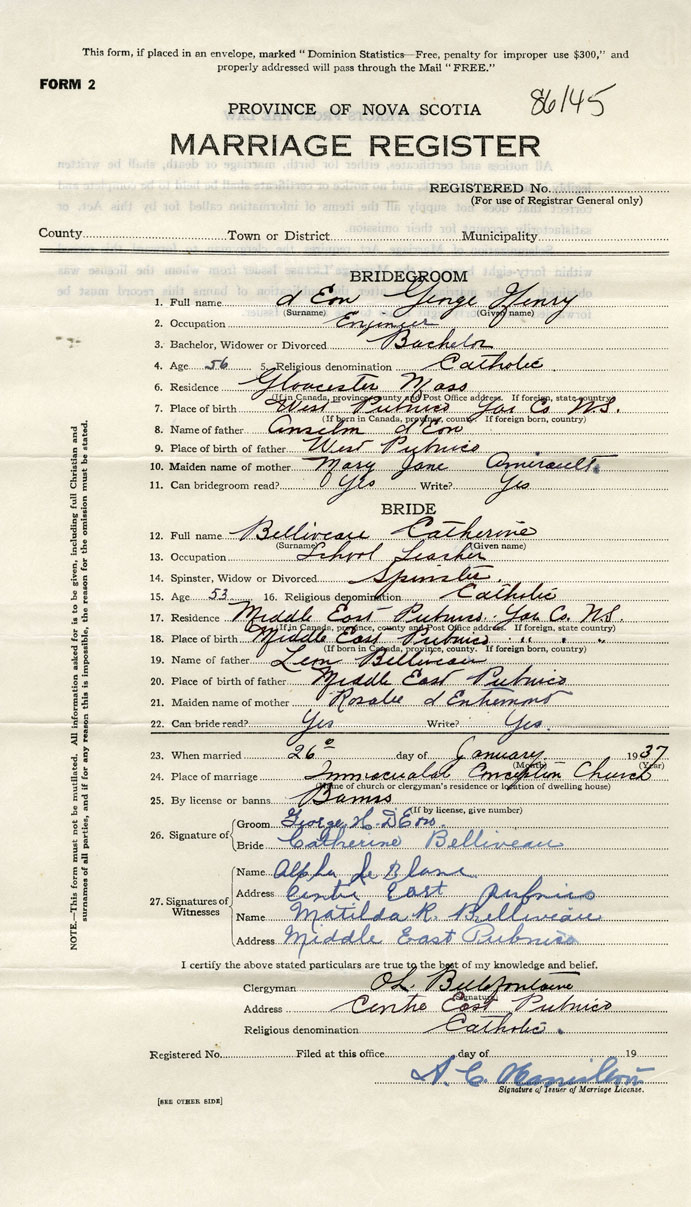 This form, if placed in an envelope, marked "Dominion Statistics—Free, penalty for improper use $300," and
properly addressed will pass through the Mail "FREE."
FORM 2
86145
PROVINCE OF NOVA SCOTIA
MARRIAGE REGISTER
REGISTERED No.
(For use of Registrar General only)
County Town or District Municipality
BRIDEGROOM
1. Full name d'Eon George Henry
(Surname) (Given name)
2. Occupation Engineer
3. Bachelor, Widower or Divorced Bachelor
4. Age 56 5. Religious denomination Catholic
6. Residence Gloucester Mass
(If in Canada, province, county and Post Office address. If foreign, state country)
7. Place of birth West Pubnico Yar Co N.S.
(If born in Canada, province, county. If foreign born, country)
8. Name of father Anselm d'Eon
9. Place of birth of father West Pubnico
10. Maiden name of mother Mary Jane Amirault
11. Can bridegroom read? Yes Write? Yes
BRIDE
12. Full name Belliveau Catherine
(Surname) (Given name)
13. Occupation School Teacher
14. Spinster, Widow or Divorced Spinster
15. Age 53 16. Religious denomination Catholic
17. Residence Middle East Pubnico Yar Co. N.S.
(If in Canada, province, county and Post Office address. If foreign, state country)
18. Place of birth Middle East Pubnico " " "
(If born in Canada, province, county. If foreign born, country)
19. Name of father Leon Belliveau
20. Place of birth of father Middle East Pubnico
21. Maiden name of mother Rosalie d'Entremont
22. Can bride read? Yes Write? Yes.
23. When married 26º day of January 1937
(Month) (Year)
24. Place of marriage Immaculate Conception Church
(Name of church or clergyman's residence or location of dwelling house)
25. By license or banns Banns
(If by license, give number)
26. Signature of
Groom George H. D'Eon
Bride Catherine Belliveau
27. Signatures of Witnesses
Name Alpha Le Blanc
Address Centre East Pubnico
Name Matilda R. Belliveau
Address Middle East Pubnico
I certify the above stated particulars are true to the best of my knowledge and belief.
Clergyman Bellefontaine
(Signature)
Address Centre East Pubnico
Religious denomination Catholic.
Registered No. Filed at this office day of 19
A. C. Hamilton
Signature of Issuer of Marriage License.
[SEE OTHER SIDE]
NOTE.—This form must not be mutilated. All information asked for is to be given, including full Christian and
surnames of all parties, and if for any reason this is impossible, the reason for the omission must be stated.